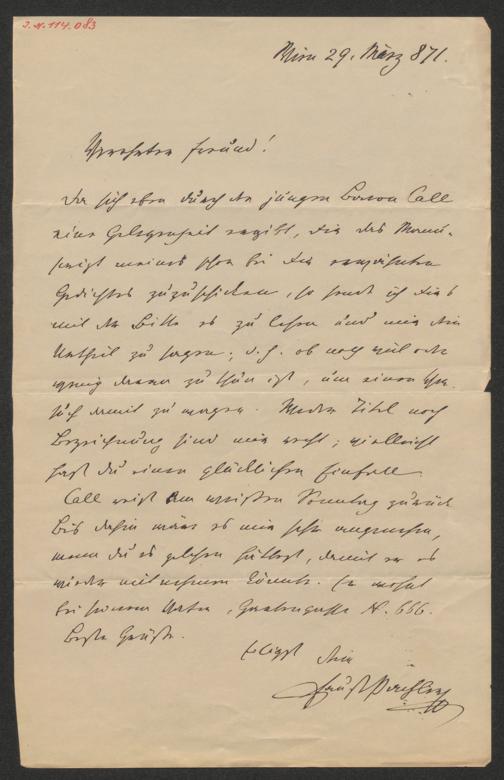 I. N. 114.083
Wien 29. März 871.
Verehrter Freund!
Da sich eben durch den jungen Baron Call
eine Gelegenheit ergibt, Dir das Manu-
skript meines schon bei Dir
Gedichtes zuzuschicken, so sende ich Dies
mit der Bitte es zu lesen und mir Dein
Urtheil zu sagen; d. h. ob noch viel oder
wenig daran zu thun ist, um einen Ver-
such damit zu wagen. Weder Titel noch
Bezeichnung sind mir recht; vielleicht
hast Du einen glücklichen Einfall.
Call reist am weißen Sonntag zurück
bis dahin wäre es mir sehr angenehm,
wenn Du es gelesen hättest, damit er es
wieder mitnehmen könnte. Er wohnt
bei seinem Vater, N. 666.
Beste Grüße.
Eiligst Dein
Faust Pachler